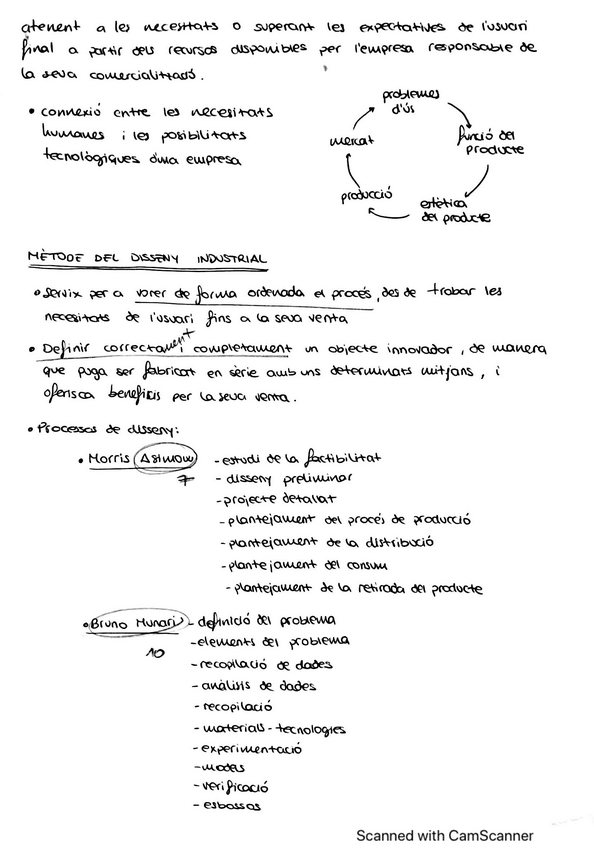 atenent a les necesitats o superant les expectatives de l'usuari
final a partir dels recursos disponibles per l'empresa responsable de
la seva comercialització.
• connexió entre les necesitats
humanes i les posibilitats
tecnològiques d'una empresa
problemes
d'ús
funció del
producte
estètica
del producte
producció
mercat
MÈTODE DEL DISSENY INDUSTRIAL
• servix per a vorer de forma ordenada el procés, des de trobar les
necesitats de l'usuari fins a la seua venta
• Definir correctament i completament un objecte innovador, de manera
que puga ser fabricat en sèrie amb uns determinats mitjans, i
oferisca beneficis per la seua venta.
• Processos de disseny:
• Morris Asimow
7
- estudi de la factibilitat
- disseny preliminar
- projecte detallat
- plantejament del procés de producció
- plantejament de la distribució
- plantejament del consum
- plantejament de la retirada del producte
• Bruno Munari
10
- definició del problema
- elements del problema
- recopilació de dades
- anàlisis de dades
- recopilació
- materials - tecnologies
- experimentació
- modes
- verificació
- esbossos
Scanned with CamScanner